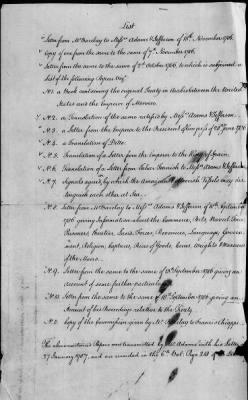 List
Letter from Mr Barclay to Messrs Adams & Jefferson of 10th November 1786.
Copy of one from the same to the same of 7th November 1786.
Letter from the same to the same of 2d October 1786, to which is subjoined a
List of the following Papers
No 1. a Book containing the original Treaty in Arabic between the United
States and the Emperor of Morocco.
No 2. a Translation of the same certified by Messrs Adams & Jefferson.
No 3. a Letter from the Emperor to the President
No 4. a Translation of Ditto
No 5. Translation of a Letter from the Emperor to the King of Spain.
No 6. Translation of a Letter from Taher Fennish to Messrs Adams & Jefferson
No 7. Signals agreed, by which the American & Moorish Vessels may
approach each other at Sea.
No 8. Letter from Mr Barclay to Messrs Adams & Jefferson of September
1786 giving Information about the Commerce, Ports, Naval Force,
Prisoners, Land Forces, Revenues, Language, Govern-
ment, Religion, Captures, Price of Goods, Coins, Weights & Measures
of the Moors.
No 9. Letter from the same to the same of 13th September 1786 giving an
account of some further particulars
No 10. Letter from the same to the same of September 1786 giving an
Account of his Proceedings relative to the Treaty.
Copy of the Commission given by Mr Barclay to Francis Chiappe
The abovementioned Papers were transmitted by Mr Adams with his Letter
27 January 1787, and are recorded in the